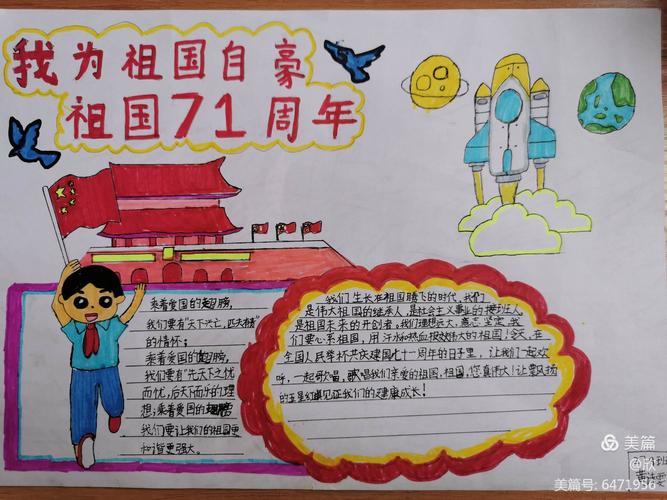 我为祖国自豪
祖国71周年
乘着爱国的翅膀,
我们要有“天下兴亡,匹夫有责”
的情怀;
乘着爱国的翅膀,
我们要有“先天下之忧
而忧,后天下而乐的理
想;乘着爱国的翅膀
我们要让我们的祖国更
和谐更强大。
我们生长在祖国腾飞的时代,我们
是伟大祖国的继承人,是社会主义事业的接班人,
是祖国未来的开创者,我们理想远大,意志坚定,我
们要心系祖国,用汗水和热血报效伟大的祖国!今天,在
全国人民举杯共庆建国七十一周年的日子里,让我们一起欢
呼,一起歌唱,歌唱我们亲爱的祖国,祖国,您真伟大!让飘扬
的五星红旗见证我们的健康成长!
美篇
@欣
美篇号:6471956